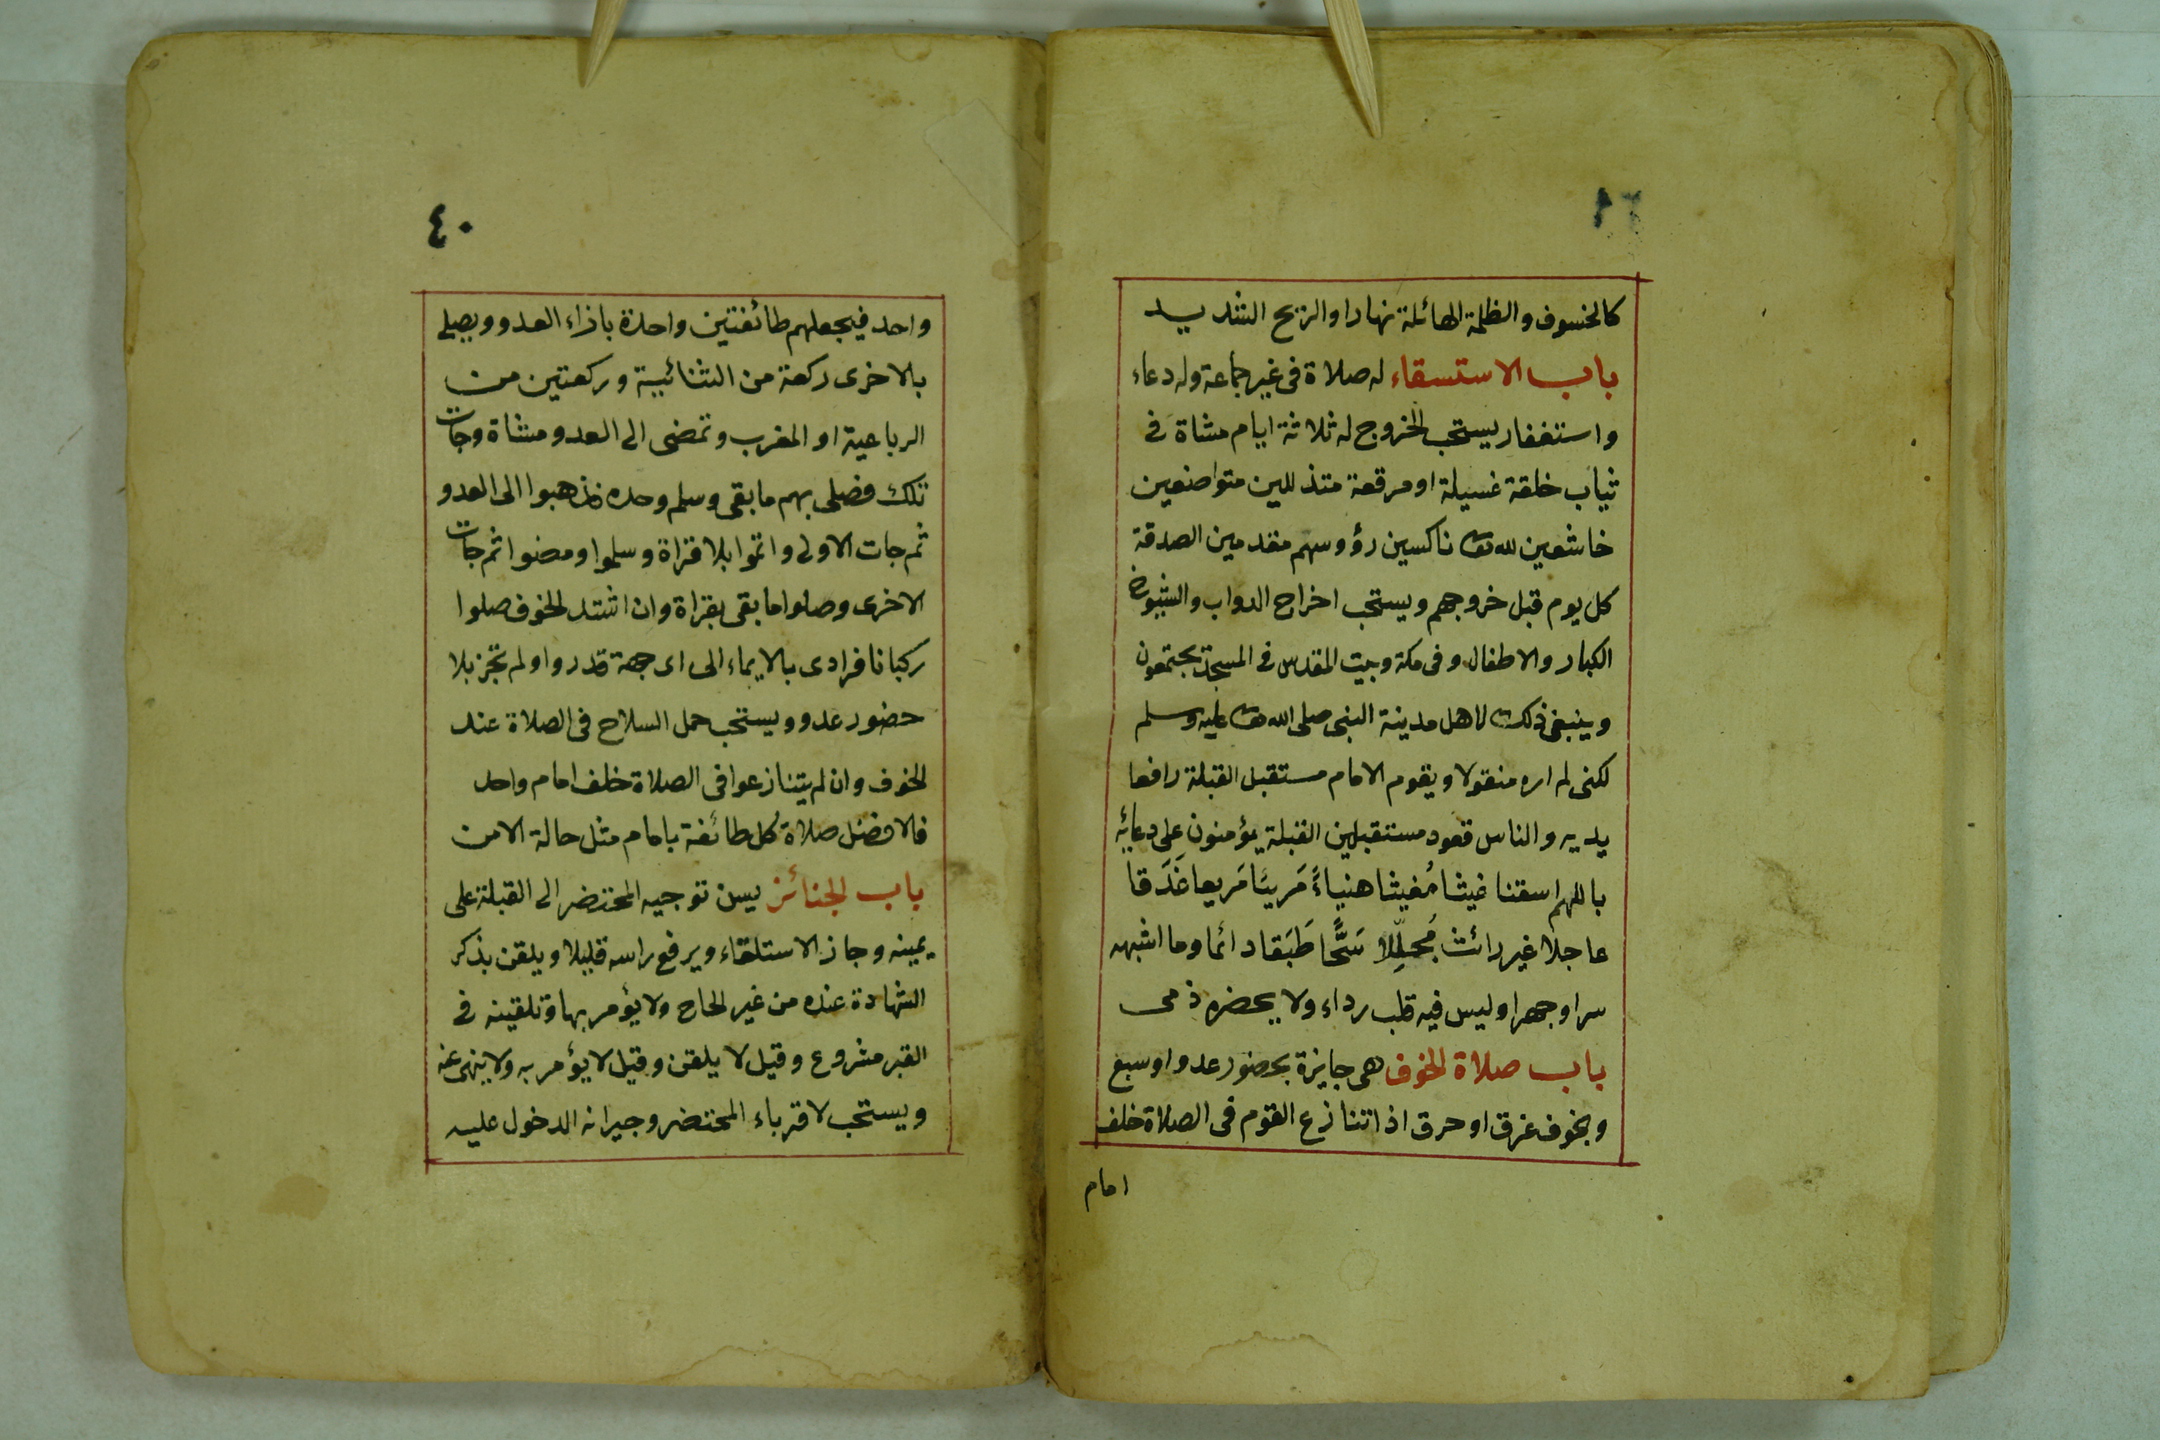 كالخسوف والظلمة الهائلة نهارا والريح الشديد
باب الاستسقاء له صلاة فى غير جماعة وله دعاء
واستغفار يستحب الخروج له ثلاثة ايام مشاة فى
ثياب خلقة غسيلة او مرقعة متذللين متواضعين
خاشعين لله تعالى ناكسين رؤوسهم مقدمين الصدقة
كل يوم قبل خروجهم ويستحب اخراج الدواب والشيوخ
الكبار والاطفال وفى مكة وبيت المقدس فى المسجد يجتمعون
وينبغى ذلك لاهل مدينة النبى صلى الله تعالى عليه وسلم
لكنى لم اره منقولا ويقوم الامام مستقبل القبلة رافعا
يديه والناس قعود مستقبلين القبلة يؤمنون على دعائه
باللهم اسقنا غيثا مُغيثا هنياءً مَريئا مَريعا غَدَقا
عاجلا غير رائث مُجلِّلا سَحًّا طَبَقا دائما وما اشبهه
سرا وجهرا وليس فيه قلب رداء ولا يحضره ذمى
باب صلاة الخوف هى جايزة بحضور عدو او سبع
وبخوف غرق او حرق اذا تنازع القوم فى الصلاة خلف
امام
٤٠
واحد فيجعلهم طائفتين واحدة بازاء العدو ويصلى
بالاخرى ركعة من الثنائية وركعتين من
الرباعية او المغرب وتمضى الى العدو مشاة وجات
تلك فصلى بهم ما بقى وسلم وحده فذهبوا الى العدو
ثم جات الاولى واتموا بلا قراة وسلموا ومضوا ثم جات
الاخرى وصلوا ما بقى بقراة وان اشتد الخوف صلوا
ركبانا فرادى بالايماء الى اى جهة قدروا ولم تجز بلا
حضور عدو ويستحب حمل السلاح فى الصلاة عند
الخوف وان لم يتنازعوا فى الصلاة خلف امام واحد
فالافضل صلاة كل طائفة بامام مثل حالة الامن
باب الجنائز يسن توجيه المحتضر الى القبلة على
يمينه وجاز الاستلقاء ويرفع راسه قليلا ويلقن بذكر
الشهادة عنده من غير الحاح ولا يؤمر بها وتلقينه فى
القبر مشروع وقيل لا يلقن وقيل لا يؤمر به ولا ينهى عنه
ويستحب لاقرباء المحتضر وجيرانه الدخول عليه